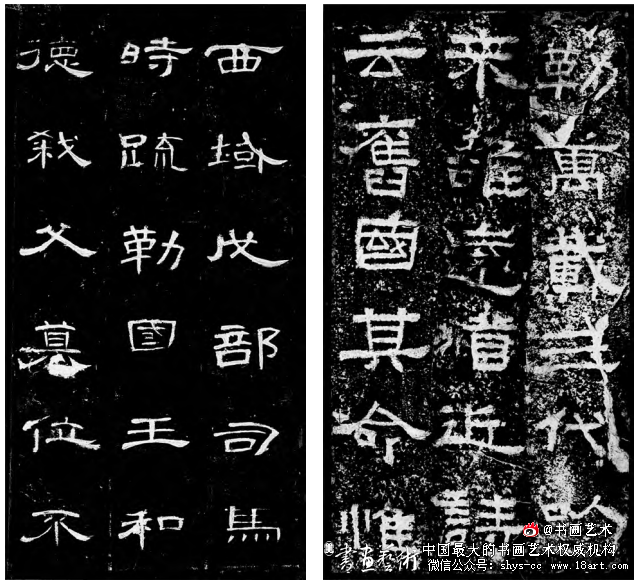 西域戊部司馬
時疏勒國王和
德弒父篡位不
勒萬載三代以
來雖遠猶近詩
云舊國其命惟
@书画艺术
書畫藝術
中国最大的书画艺术权威机构
微信公众号：shys-cc www.18art.com